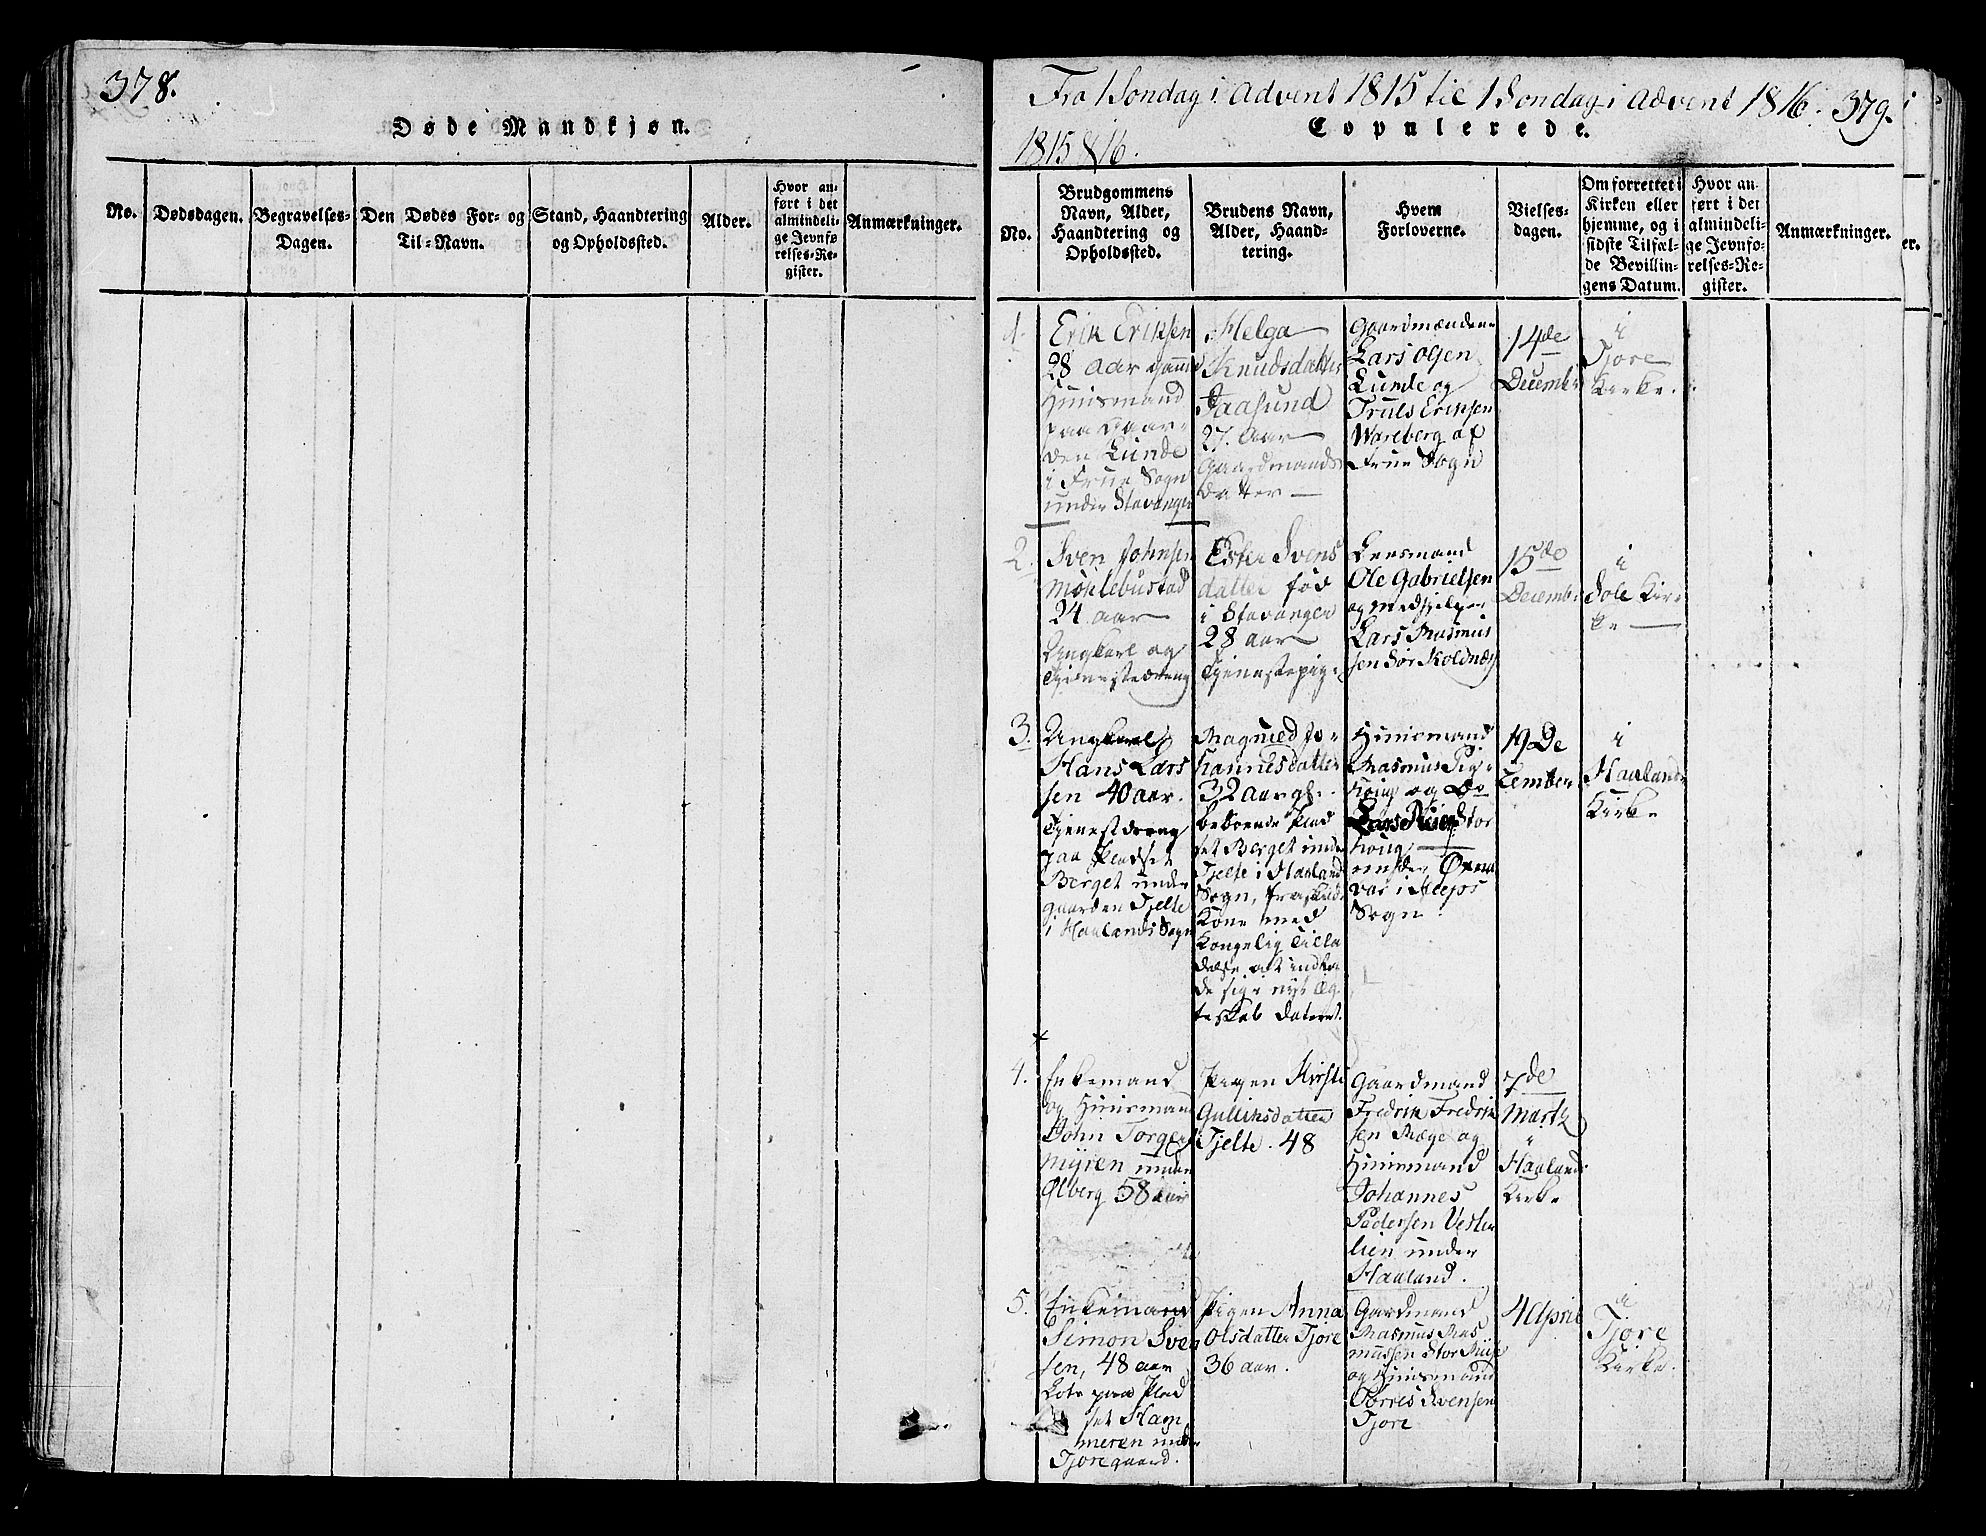 378.
Døde Mandkjøn.
No.
Dødsdagen.
Begravelses-
Dagen.
Den Dødes For- og
Til-Navn.
Stand, Haandtering
og Opholdssted.
Alder.
Hvor an-
ført i det
almindeli-
ge Jevnfø-
relses-Re-
gister.
Anmærkninger.
Fra 1 Søndag i Advent 1815 til 1 Søndag i Advent 1816. 379.
Copulerede.
1815 & 16.
No.
Brudgommens
Navn, Alder,
Haandtering og
Opholdssted.
Brudens Navn,
Alder, Haand-
tering.
Hvem
Forloverne.
Vielses-
dagen.
Om forrettet i
Kirken eller
hjemme, og i
sidste Tilfæl-
de Bevillin-
gens Datum.
Hvor an-
ført i det
almindeli-
ge Jevnfø-
relses-Re-
gister.
Anmærkninger.
1.
Erik Eriksen
28 Aar gamel
Huusmand
paa Gaar-
den Lunde
i Frue Sogn
under Stavanger
Helga
Knudsdatter
Jaasund
27. Aar
Gaardmands
datter
Gaardmændene
Lars Olsen
Lunde og
Truls Eriksen
Wareberg af
Frue Sogn
14de
December
i
Tjore
Kirke.
2.
Sven Johnsen
Møklebustad
24 aar
Ungkarl og
Tjenestedreng
Ester Svens
datter fød
i Stavanger
28 aar
Tjenestepige
Lensmand
Ole Gabrielsen
og medhjelper
Lars Rasmus
sen Sør Koldnæs
15de
December
i
Sole Kir-
ke
3.
Ungkarl
Hans Lars
sen 40 aar.
Tjenestdreng
paa Pladset
Berget under
gaarden Tjelte
i Haalands Sogn
Magnild Jo-
hannesdatter
32 aar gl.
beboende Plad
set Berget under
Tjelte i Haaland
Sogn, fraskildt
Kone med
Kongelig Tilla
delse at indla
de sig i nyt Æg
teskab dateret.
Huusmand
Rasmus
og
Lars
under
i
Sogn.
19 De
cember
i
Haalands
Kirke
4.
Enkemand
og Huusmand
John Torgers
Myren under
Ølberg 58 aar
Pigen Kirsti
Gulliksdatter
Tjelte. 48
Gaardmand
Fredrik Fredrik
sen Ræge og
Huusmand
Johannes
Pedersen Vester
lien under
Haaland.
7de
Martz
i
Haalands
Kirke
5.
Enkemand
Simon Sven
sen, 48 aar
paa Plad
set Ham
meren under
Tjore gaard.
Pigen Anna
Olsdatter Tjore
36 aar.
Gaardmand
Rasmus Ras
mussen Stor
og Huusmand
Torres Svensen
Tjore
4 April
i
Tjore
Kirke.